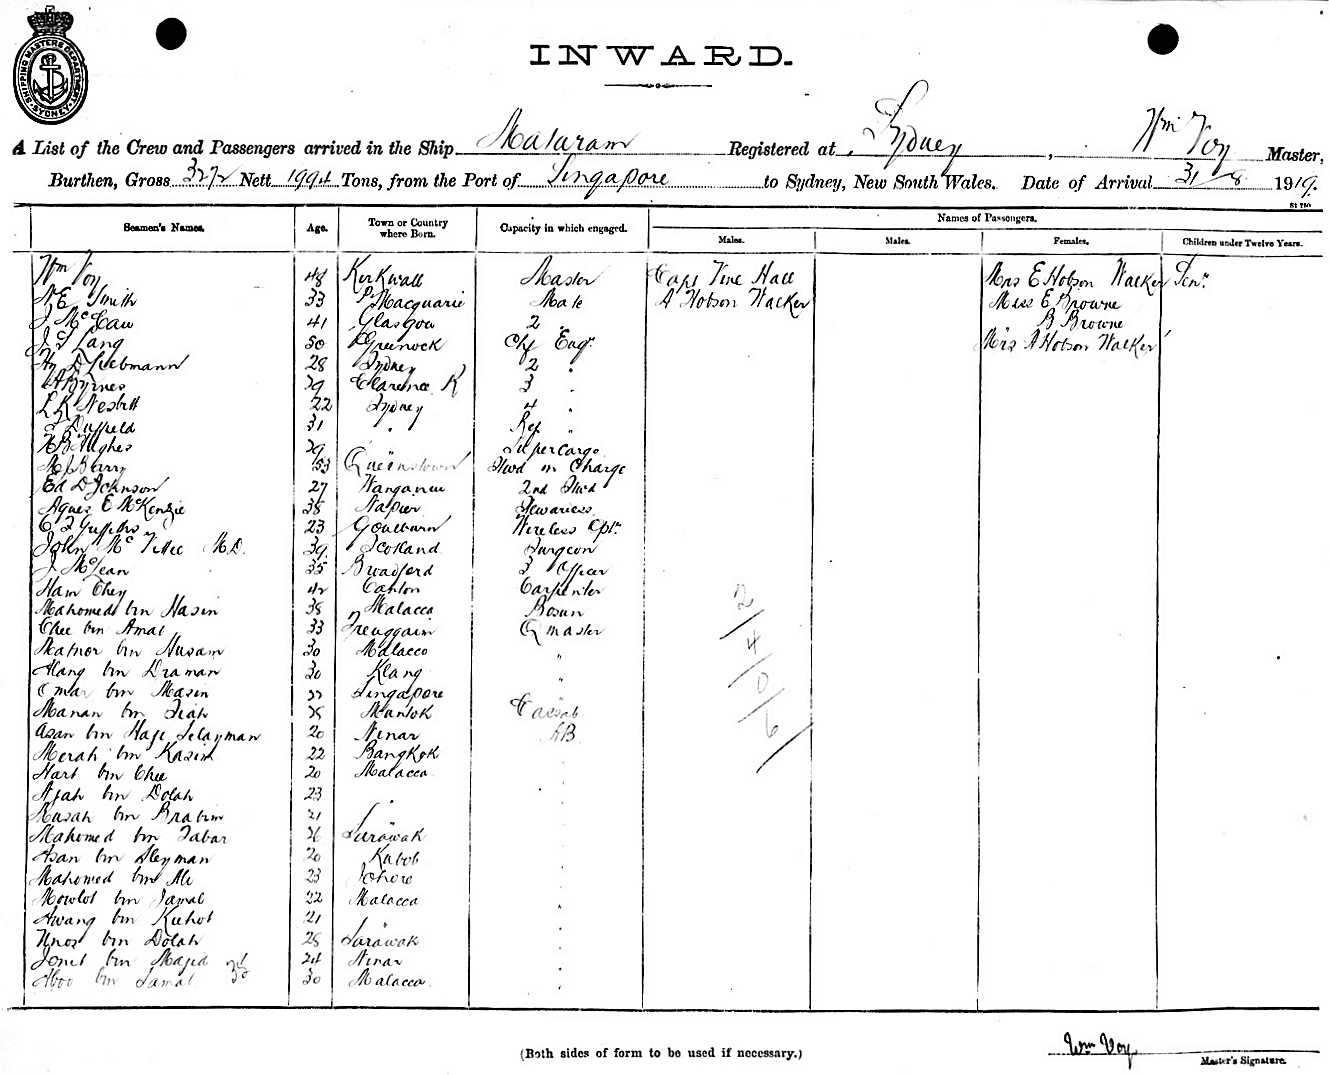 SHIPPING MASTERS DEPARTMENT SYDNEY
INWARD.
A List of the Crew and Passengers arrived in the Ship Mataram Registered at Sydney, Wm Voy Master,
Burthen, Gross 3272 Nett 1994 Tons, from the Port of Singapore to Sydney, New South Wales. Date of Arrival 31/8 1919.
Seamen's Names. Age. Town or Country where Born. Capacity in which engaged. Names of Passengers.
Males. Males. Females. Children under Twelve Years.
Wm Voy 48 Kirkwall Master Capt Vine Hall Mrs E Hobson Walker Senr
Smith 33 Pt Macquarie Mate A Hobson Walker Miss E Browne
J McCaw 41 Glasgow 2 " " B Browne
J Lang 50 Greenock Chf Engr Mrs A Hobson Walker
Hy D Liebmann 28 Sydney 2 "
A Byrnes 39 Clarence R 3 "
Nesbitt 22 Sydney 4 "
Duffield 31 " Ref "
Hughes 39 " Supercargo
M J Barry 53 Queenstown Stwd in Charge
Ed D Johnson 27 Wanganui 2nd Stwd
Agnes E McKenzie 38 Napier Stewardess
23 Goulburn Wireless Optr
John Mc M.D. 39 Scotland Surgeon
J McLean 35 Bradford 3 Officer
Ham Chey 42 Canton Carpenter
Mahomed bin Hasin 38 Malacca Bosun
Chee bin Amat 33 Q master
bin Husain 30 Malacca "
bin Draman 30 Klang "
Omar bin Masin Singapore "
Manan bin 38 Muntok Cassab
Asan bin Haji Selayman 20 Ninar AB
Merah bin Kasim 22 Bangkok "
bin Chee 20 Malacca "
bin Dolah 23 " "
bin Brahim 21 " "
Mahomed bin Jabar 26 Sarawak "
Asan bin Sleyman 20 "
Mahomed bin Ali 23 Johore "
bin Jamal 22 Malacca "
Awang bin 21 " "
bin Dolah 28 Sarawak "
bin Majid 24 Ninar "
bin Jamal 30 Malacca "
35
2/4/0/6/
(Both sides of form to be used if necessary.)
Wm Voy
Master's Signature.